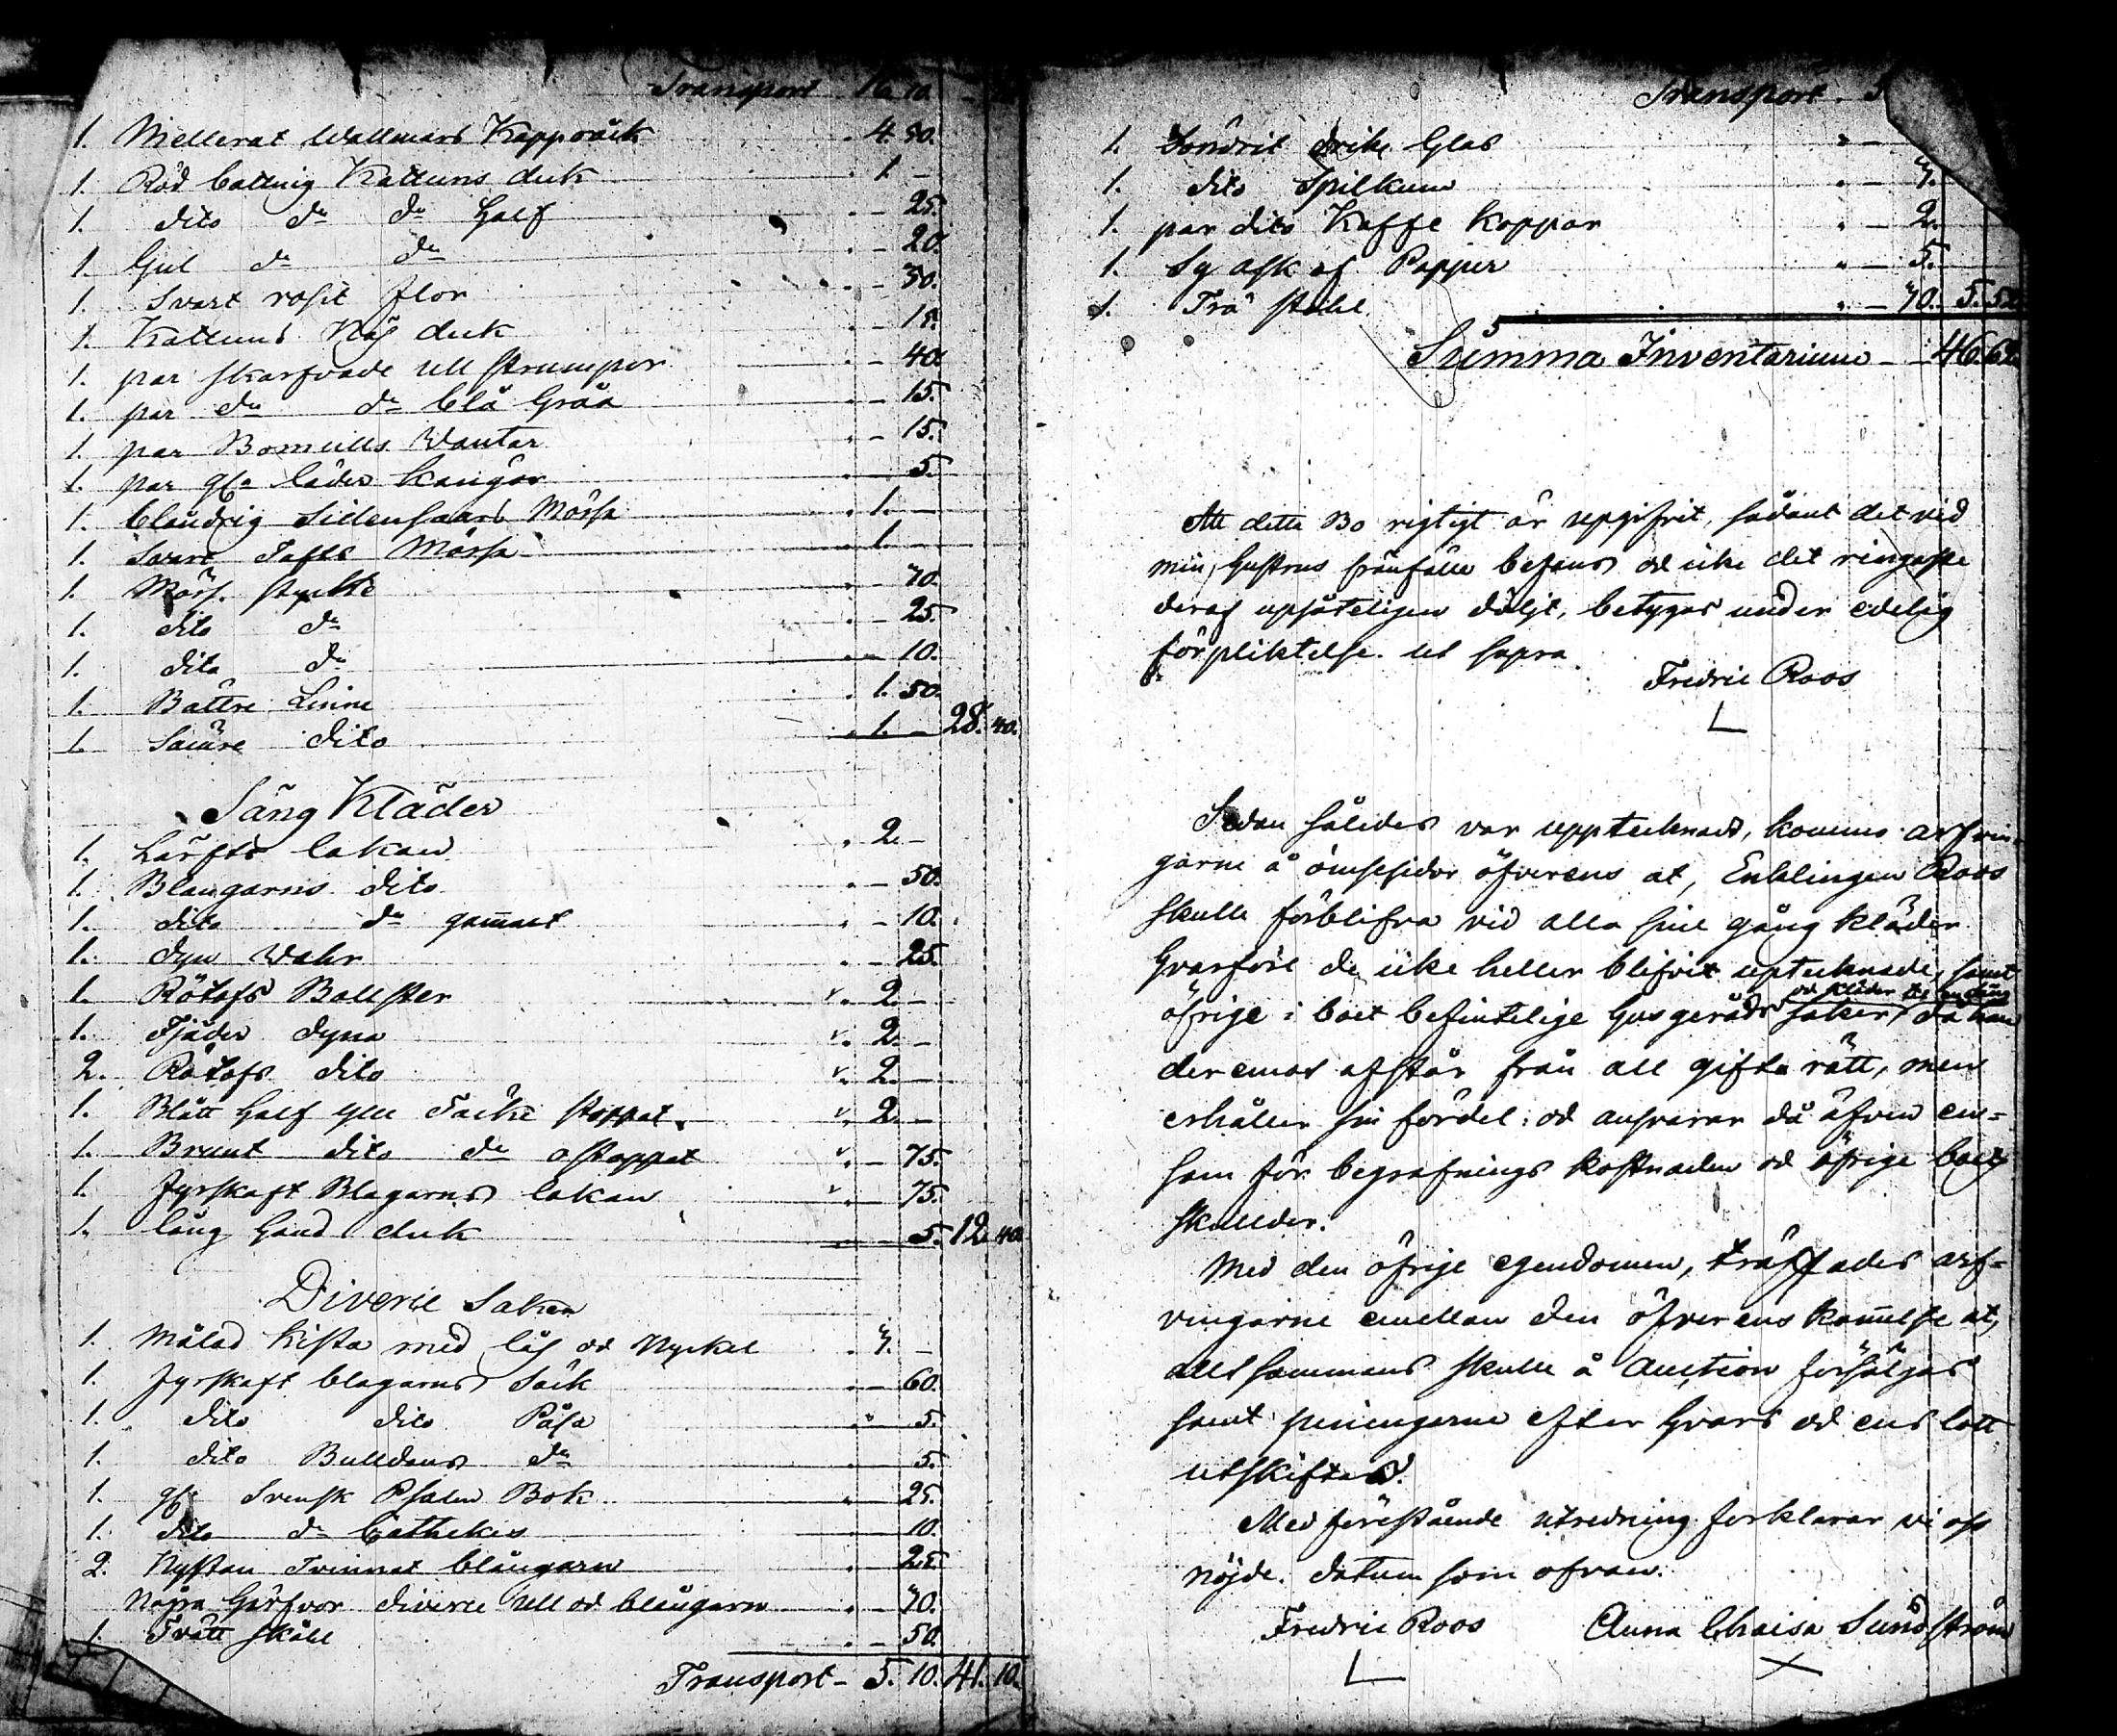 Transport 16. 70.
1. Mellerat Wallmars Kappråck " 4. 50.
1. Röd bottnig Kattuns duk " 1. –
1. dito do do half " – 25.
1. Gul do do " – 20.
1. Svart rosit flor " – 50.
1. Kattuns Näs duk " – 15.
1. par skarfvade ull strumpor " – 40.
1. par do do blå Gråa " – 15.
1. par Bomulls Wantar " – 15.
1. par läder kängor " – 5.
1. blaudrig Mössa " 1. –
1. Svart Tafts Mössa " 1. –
1. Möss. stycke " – 70.
1. dito do " – 25.
1. dito do " – 10.
1. Bättre Linne " 1. 50.
1. Sämre dito " 1. – 28. 40.
Säng Kläder
1. Lärfts lakan " 2. –
1. Blangarns dito " – 50.
1. dito do gam̄alt " – 10.
1. dyn Wahr " – 25.
1. Rötofs Bollster " 2. –
1. Fjäder dyna " 2. –
2. Rötofs dito " 2. –
1. Blått half ylle Täcke stoppat " 2. –
1. Brunt dito do ostoppat " – 75.
1. fyrskaft Blagarns lakan " – 75.
1. lång hand duk " – 5. 12. 40.
Diverse Saker
1. Målad kista med lås och Nyckel " 3. –
1. fyrskaft blagarns Säck " – 60.
1. dito dito Påsa " – 5.
1. dito Bulldans do " – 5.
1. Svensk Psalm Bok " – 25.
1. dito do Cathekes " – 10.
2. Nystan Tvinnat blångarn " – 25.
Några Härfvor diverse ull och blångarn " – 70.
1. Tvätt skåll " – 50.
Transport – 5. 10. 41. 10.
Transport. 5
1. Söndrit drike Glas " –
1. dito Spilkum " – 3.
1. par dito Kaffe koppar " – 2.
1. Sy ask af Papper " – 5.
1. Trä stohl " – 70. 5. 52
Summa Inventarium – 46. 62
Att detta Bo rigtigt är uppgifvit, sådant det vid
min Hustrus frånfälle befans och icke det ringaste
deraf upsåteligen döljt, betygas under edelig
förpliktelse. ut supra
Fredric Roos
L
Sedan således var upptecknadt, kommo arfvin-
garne å ömsesidor öfverens at, Enklingen Roos
skulle förblifva vid alla sine gång kläder
hvarföre de icke heller blifvit uptecknade, samt
öfrige i boet befintelige husgeråds saker, då han
deremot afstår från all gifto rätt, men
erhåller sin fördel: och ansvarar då äfven en=
sam för begrafnings kostnaden och öfrige boets
skullder.
Med den öfrige egendomen, träffades arf=
vingarne emellan den öfverens kom̄else at,
alltsammans skulle å Auction försäljas
samt penningarne efter hvars och ens lott
utskiftas.
Med förestående utredning förklarar vi oss
nöjde. datum som ofvan.
Fredric Roos Anna Chaisa Sundström
L X